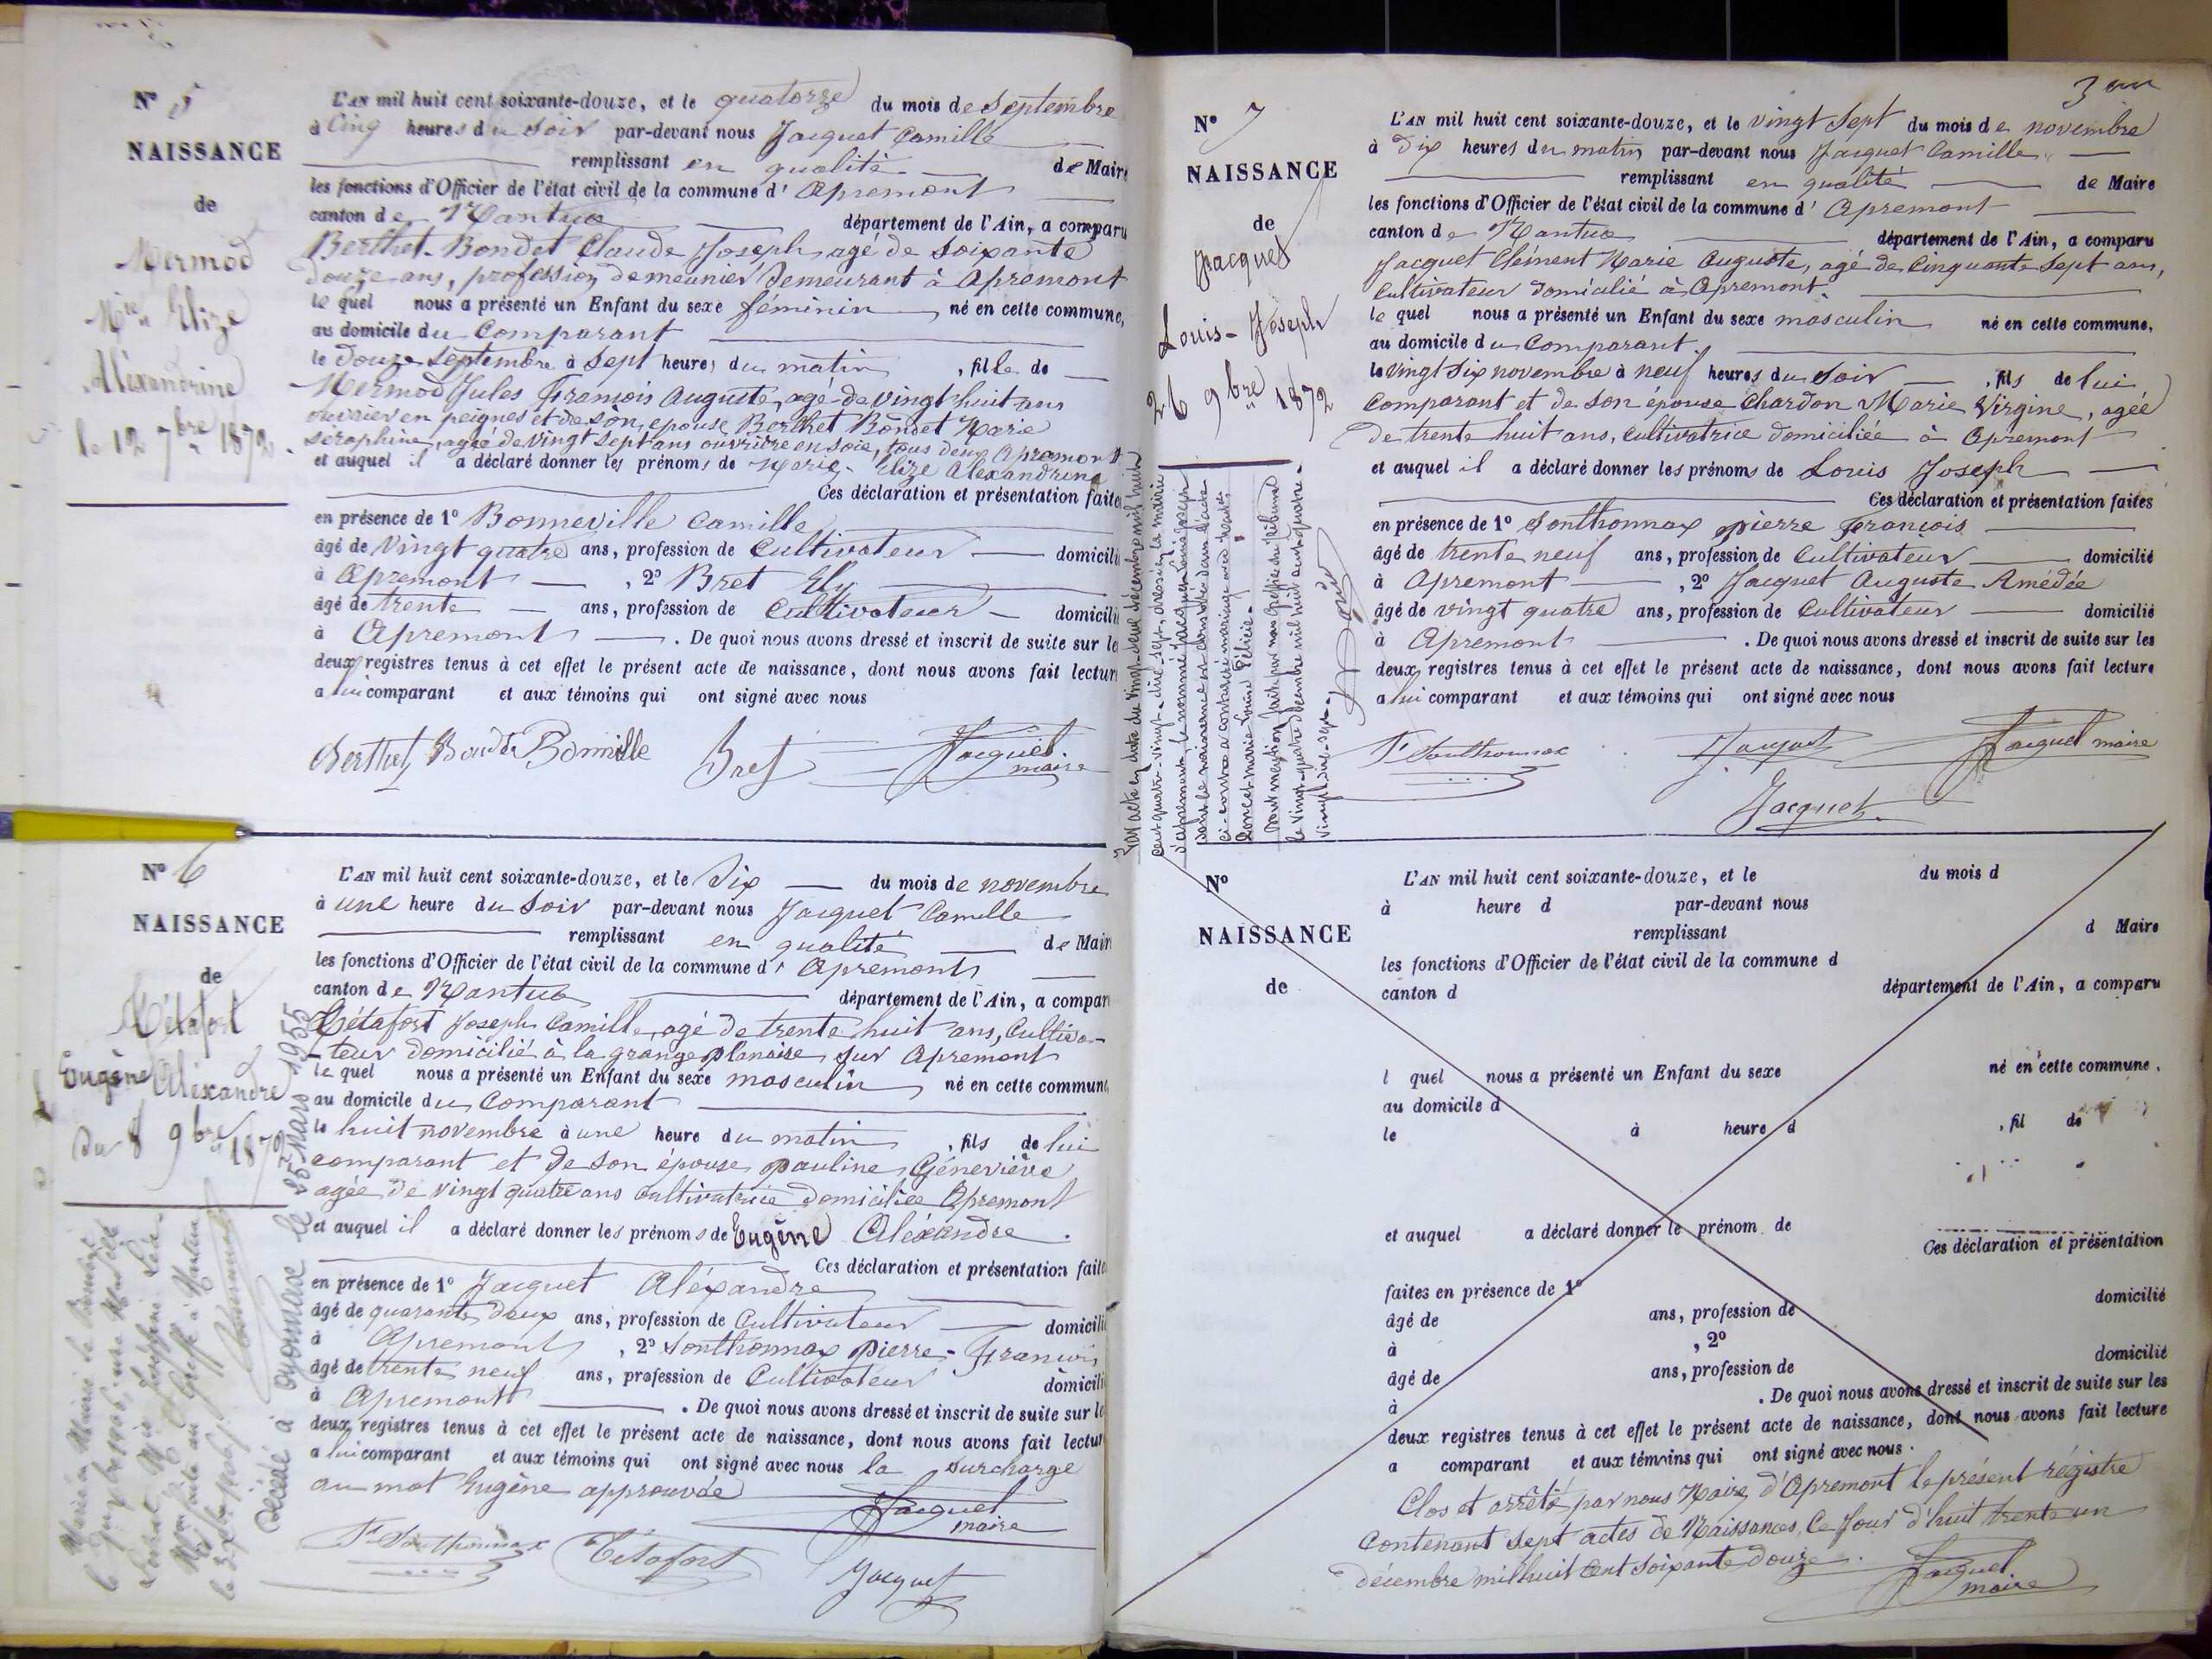 N° 5
NAISSANCE
de
Mermod
Mie Elize
Aléxandrine
le 12 7bre 1872.
L'AN mil huit cent soixante-douze, et le quatorze du mois de Septembre
à Cinq heures du Soir par-devant nous Jacquet Camille
remplissant en qualité de Maire
les fonctions d'Officier de l'état civil de la commune d' Apremont
canton de Nantua département de l'Ain, a comparu
Berthet-Bondet Claude Joseph, agé de Soixante
douze ans, profession de meunier Demeurant à Apremont
le quel nous a présenté un Enfant du sexe féminin né en cette commune,
au domicile du Comparant
le douze Septembre à Sept heures du matin , fille de
Mermod Jules François Auguste, agé de vingt huit ans
ouvrier en peignes et de son epouse Berthet Bondet Marie
Séraphine, agée de vingt Sept ans ouvrière en soie, tous deux Apremont
et auquel il a déclaré donner les prénoms de Marie-Elize Alexandrine
Ces déclaration et présentation faites
en présence de 1° Bonneville Camille
âgé de Vingt quatre ans, profession de Cultivateur domicilié
à Apremont , 2° Bret Ely
âgé de trente ans, profession de Cultivateur domicilié
à Apremont . De quoi nous avons dressé et inscrit de suite sur les
deux registres tenus à cet effet le présent acte de naissance, dont nous avons fait lecture
a lui comparant et aux témoins qui ont signé avec nous
Berthet Bondet Bonnville Bret Jacquet
maire
N° 6
NAISSANCE
de
Tétafort
Eugène Aléxandre
du 8 9bre 1872
Décédé à Oyonnax le 25 Mars 1955
L'AN mil huit cent soixante-douze, et le Dix du mois de novembre
à une heure du Soir par-devant nous Jacquet Camille
remplissant en qualité de Maire
les fonctions d'Officier de l'état civil de la commune d' Apremont
canton de Nantua département de l'Ain, a comparu
Tétafort Joseph Camille, agé de trente huit ans, Cultiva-
-teur domicilié à la grange planaise sur Apremont
le quel nous a présenté un Enfant du sexe masculin né en cette commune,
au domicile du Comparant
le huit novembre à une heure du matin , fils de lui
comparant et de son épouse pauline Géneviève
agée de vingt quatre ans cultivatrice domiciliée Apremont
et auquel il a déclaré donner les prénoms de Eugène Aléxandre.
Ces déclaration et présentation faites
en présence de 1° Jacquet Aléxandre
âgé de quarante deux ans, profession de Cultivateur domicilié
à Apremont , 2° Sonthonnax pierre-François
âgé de trente neuf ans, profession de Cultivateur domicilié
à Apremont . De quoi nous avons dressé et inscrit de suite sur les
deux registres tenus à cet effet le présent acte de naissance, dont nous avons fait lecture
a lui comparant et aux témoins qui ont signé avec nous la surcharge
au mot Eugène approuvée
Jacquet
maire
P. Sonthonnax Tétafort Jacquet
3
N° 7
NAISSANCE
de
Jacquet
Louis-Joseph
26 9bre 1872
Par acte en date du vingt-deux décembre mil huit
cent quatre-vingt-dix-sept, dressé à la mairie
d'Apremont, le nommé Jacquet Louis Joseph
dont la naissance est constatée dans l'acte
ci-contre a contracté mariage avec
Poncet Marie Louise Félicie.
Pour mention faite par nous greffier du tribunal
le vingt-quatre décembre mil huit cent quatre-
vingt-dix-sept.
L'AN mil huit cent soixante-douze, et le vingt Sept du mois de novembre
à Dix heures du matin par-devant nous Jacquet Camille
remplissant en qualité de Maire
les fonctions d'Officier de l'état civil de la commune d' Apremont
canton de Nantua département de l'Ain, a comparu
Jacquet Clément Marie Auguste, agé de Cinquante Sept ans,
Cultivateur domicilié à Apremont
le quel nous a présenté un Enfant du sexe masculin né en cette commune,
au domicile du Comparant.
le vingt Six novembre à neuf heures du Soir , fils de lui
Comparant et de Son épouse Chardon Marie Virgine, agée
de trente huit ans, Cultivatrice domiciliée à Apremont
et auquel il a déclaré donner les prénoms de Louis Joseph
Ces déclaration et présentation faites
en présence de 1° Sonthonnax pierre François
âgé de trente neuf ans, profession de Cultivateur domicilié
à Apremont , 2° Jacquet Auguste Amédée
âgé de vingt quatre ans, profession de Cultivateur domicilié
à Apremont . De quoi nous avons dressé et inscrit de suite sur les
deux registres tenus à cet effet le présent acte de naissance, dont nous avons fait lecture
a lui comparant et aux témoins qui ont signé avec nous
P. Sonthonnax Jacquet Jacquet maire
Jacquet
N°
NAISSANCE
de
L'AN mil huit cent soixante-douze, et le du mois d
à heure d par-devant nous
remplissant d Maire
les fonctions d'Officier de l'état civil de la commune d
canton d département de l'Ain, a comparu
l quel nous a présenté un Enfant du sexe né en cette commune,
au domicile d
le à heure d , fil de
et auquel a déclaré donner le prénom de
Ces déclaration et présentation
faites en présence de 1°
domicilié
âgé de ans, profession de
à , 2°
domicilié
âgé de ans, profession de
à . De quoi nous avons dressé et inscrit de suite sur les
deux registres tenus à cet effet le présent acte de naissance, dont nous avons fait lecture
a comparant et aux témoins qui ont signé avec nous.
Clos et arrêté par nous Maire d'Apremont le présent régistre
Contenant sept actes de Naissances, Ce Jour d'huit trente un
décembre mil huit cent Soixante douze.
Jacquet
maire